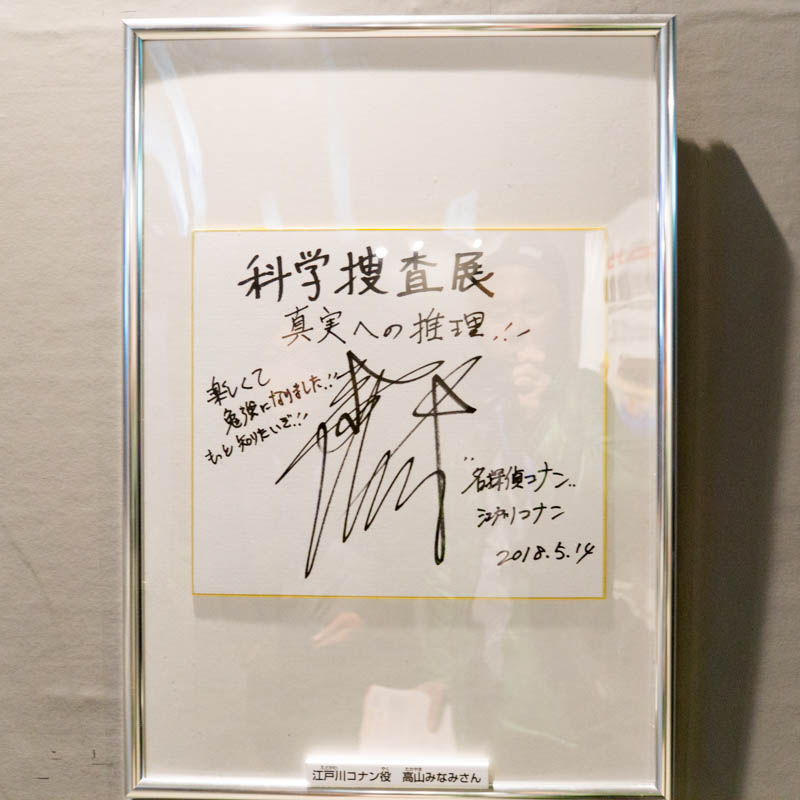 科学捜査展
真実への推理!!
楽しくて
勉強になりました!!
もっと知りたいぞ!!
"名探偵コナン"
江戸川コナン
2018.5.14
江戸川コナン役 高山みなみさん